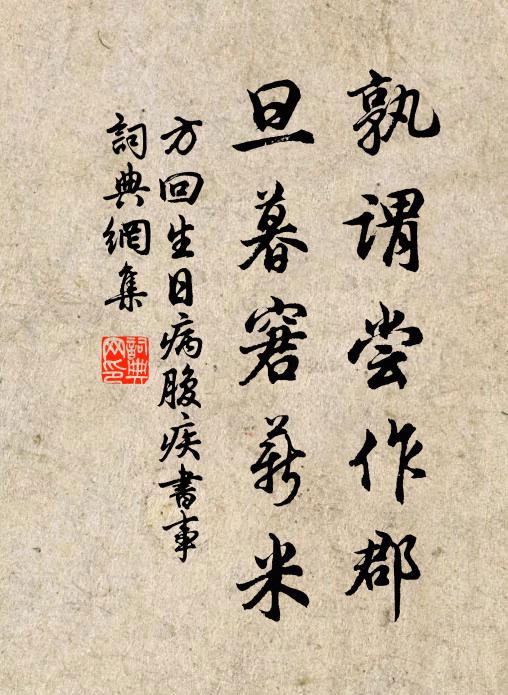 孰谓尝作郡
旦暮窘薪米
方回生日病腹疾書事
詞典網集
詞典网印